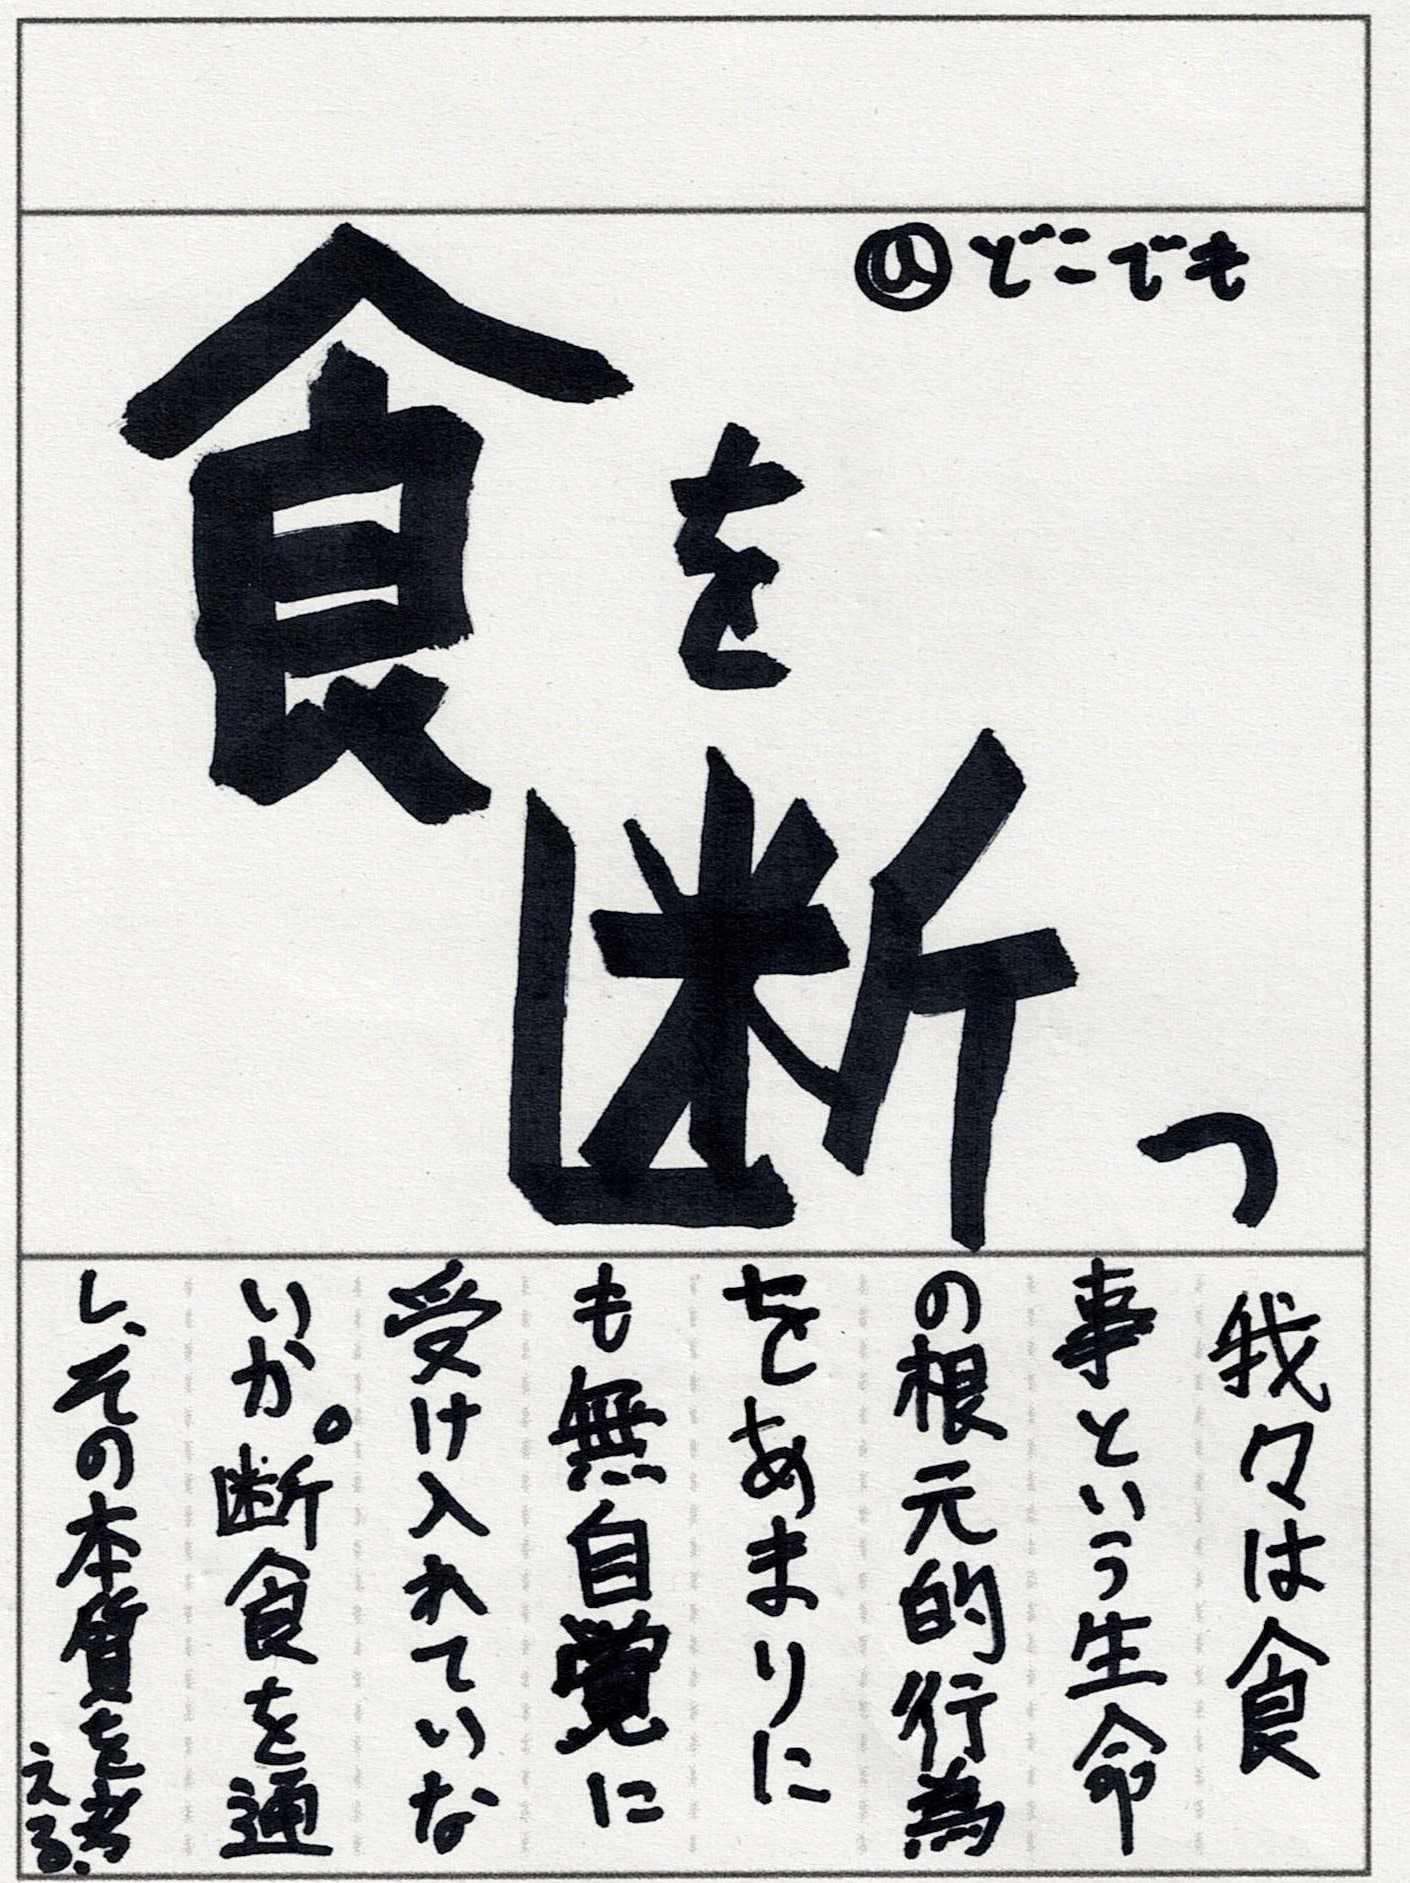 のどこでも
食を断つ
我々は食
事という生命
の根元的行為
をあまりに
も無自覚に
受け入れていな
いか。断食を通
し、その本質を考
える。